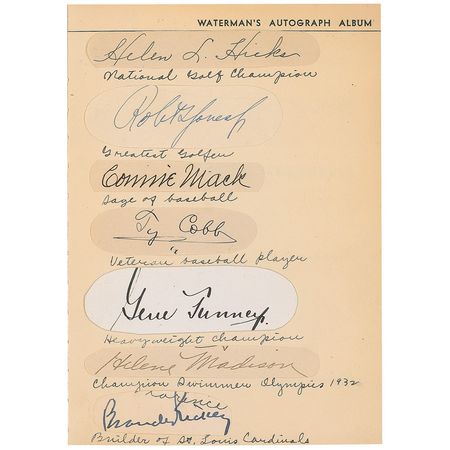 WATERMAN'S AUTOGRAPH ALBUM
Helen L. Hicks
National Golf Champion
Robt T Jones Jr
Greatest Golfer
Connie Mack
Sage of baseball
Ty Cobb
Veteran baseball player
Gene Tunney
Heavyweight champion
Helene Madison
Champion Swimmer Olympics 1932
Branch Rickey
Builder of St. Louis Cardinals